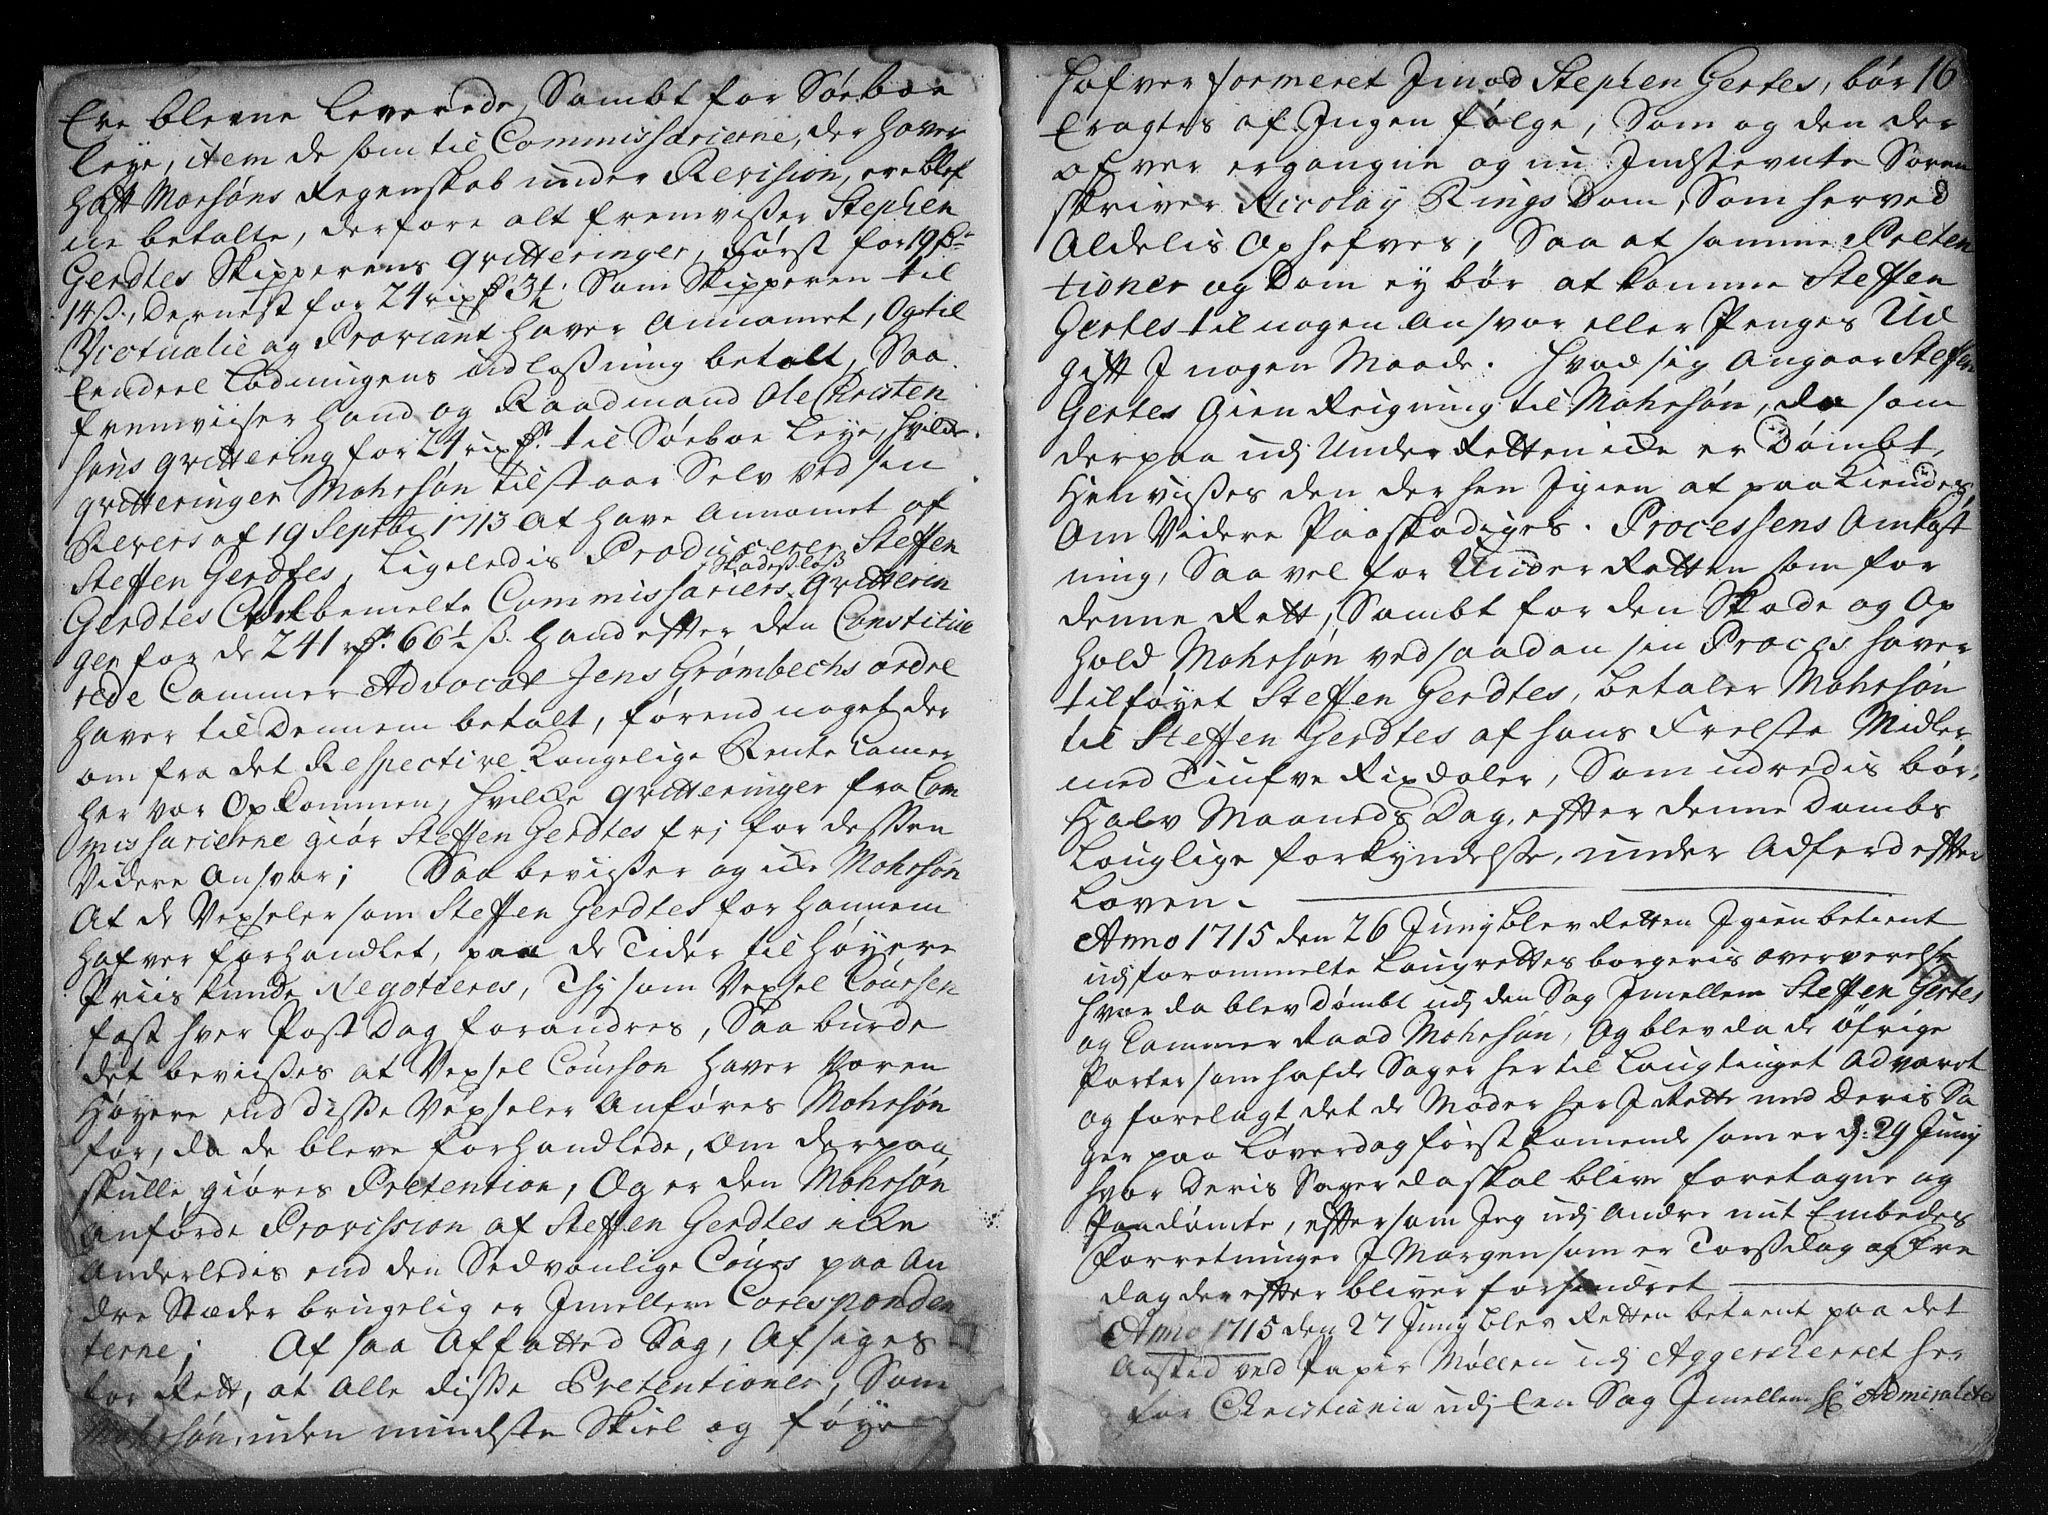 Ere blevne leverede, Sambt for Søeboe
leye, item de som til Commissarierne, der haver
hafft Morsøns Regenskab under Revision, ere blef
ne betalte, derfore alt fremvisser Stephen
Gerdtes Skipperens qvitteringer, Først for 19
14 ß., Dernest for 24 rix 3 Som Skipperen til
Victualie og Proviant haver Annamet, Og til
Endeel Ladningens udlosning betalt, Saa
fremviser hand og Raadmand Ole Christen
søns qvittering for 24 rix til Søeboe Leye, hvilke
qvitteringer Mohrsøn tilstaar Selv ved sin
Revers af 19 Septbr 1713 At have Annamet af
Steffen Gerdtes, Ligeledis Producerer Steffen
Gerdtes bemelte Commissariers Skadesløß qvitterin
ger for de 241 r 66½ ß. hand efter den Constitue
rede Cammer Advocat Jens Grømbechs ordre
haver til Dennem betalt, førend noget der
om fra det Respective Kongelige Rente Camer
her var Opkommen, hvilke qvitteringer fra Com
missarierne giør Steffen Gerdtes frj for dessen
Videre Ansvar; Saa bevisser og icke Mohrsøn
At de Vexseler som Steffen Gerdtes for hannem
hafver forhandlet, paa de Tider til høyere
Priis kunde Negotieres, Thj som Vexsel Coursen
fast hver Post Dag forandres, Saa burde
det bevisses at Vexsel Courson haver voren
høyere end disse Vexseler Anføres Mohrsøn
for, da de bleve forhandlede, Om derpaa
skulle giøres Pretention, Og er den Mohrsøn
Anførde Provission af Steffen Gerdtes icke
Anderledis end den Sedvonlige Cours paa An
dre Stæder brugelig er Jmellem Coresponden
terne; Af saa Affatted Sag, Afsiges
for Rett, at Alle disse Pretentioner, Som
Mohrsøn, uden mindste Skiel og føye
hafver formeret Jmod Stephen Gertes, bør 16
Eragtes af Jngen følge, Som og den der
ofver ergangne og nu Jndstevnte Soren
skriver Nicolay Rings Dom, Som herved
Aldelis Ophefves, Saa at samme Preten
tioner og Dom ey bør at komme Steffen
Gertes til nogen Ansvar eller Penges Ud
gifft J nogen Maade. Hvad sig Angaar Steffen
Gertes Gien Reigning til Mohrsøn, da som
derpaa udj Under Retten icke er Dømbt,
Henvisses den der hen Jgien at paa Kiendes,
Om Videre Paaskadiges. Processens Omkost
ning, Saa vel for Under Retten som for
denne Rett, Sambt for den Skade og Op
hold Mohrsøn ved saadan sin Proces haver
tilføyet Steffen Gerdtes, betaler Mohrsøn
til Steffen Gerdtes af hans Frelste Midler
med Tiufve Rixdaler, Som udredis bør,
Halv Maaneds Dag, efter denne Dombs
Louglige forkyndelse, under Adferd efter
Loven.
Anno 1715 den 26 Junij blev Retten Jgien betient
udj forommelte Laugrettes borgeris oververelse
hvor da blev Dømbt udj den Sag Jmellem Steffen Gertes
og Cammer Raad Mohrsøn, Og blev da de øfrige
Parter som hafde Sager her til Laugtinget Advaret
og forelagt det de Møder her J Rette med Deris Sa
ger paa Løverdag først komende som er d: 29 Junij
hvor Deris Sager da skal blive foretagne og
Paadømte, eftersom Jeg udj Andre mit Embedes
Forretninger J Morgen som er Torssdag og Fre
dag der efter bliver forhindret
Anno 1715 den 27 Junij blev Retten betient paa det
Aasted ved Papir Møllen udj Aggersherret her
for Christiania udj Een Sag Jmellem Hr Admiralitets